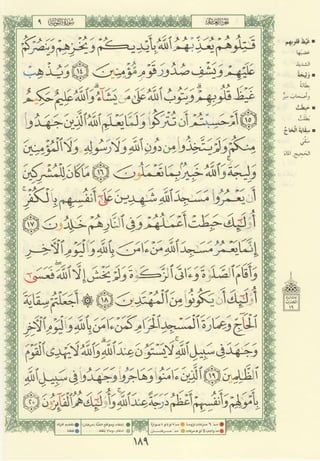 ٩ سُورَةُ التَّوْبَةِ الجُزْءُ العَاشِرُ
قَٰتِلُوهُمْ يُعَذِّبْهُمُ ٱللَّهُ بِأَيْدِيكُمْ وَيُخْزِهِمْ وَيَنصُرْكُمْ
عَلَيْهِمْ وَيَشْفِ صُدُورَ قَوْمٍ مُّؤْمِنِينَ ١٤ وَيُذْهِبْ
غَيْظَ قُلُوبِهِمْ وَيَتُوبُ ٱللَّهُ عَلَىٰ مَن يَشَآءُ وَٱللَّهُ عَلِيمٌ حَكِيمٌ
١٥ أَمْ حَسِبْتُمْ أَن تُتْرَكُوا۟ وَلَمَّا يَعْلَمِ ٱللَّهُ ٱلَّذِينَ جَٰهَدُوا۟
مِنكُمْ وَلَمْ يَتَّخِذُوا۟ مِن دُونِ ٱللَّهِ وَلَا رَسُولِهِۦ وَلَا ٱلْمُؤْمِنِينَ
وَلِيجَةً وَٱللَّهُ خَبِيرٌۢ بِمَا تَعْمَلُونَ ١٦ مَا كَانَ لِلْمُشْرِكِينَ
أَن يَعْمُرُوا۟ مَسَٰجِدَ ٱللَّهِ شَٰهِدِينَ عَلَىٰٓ أَنفُسِهِم بِٱلْكُفْرِ
أُو۟لَٰٓئِكَ حَبِطَتْ أَعْمَٰلُهُمْ وَفِى ٱلنَّارِ هُمْ خَٰلِدُونَ ١٧
إِنَّمَا يَعْمُرُ مَسَٰجِدَ ٱللَّهِ مَنْ ءَامَنَ بِٱللَّهِ وَٱلْيَوْمِ ٱلْءَاخِرِ
وَأَقَامَ ٱلصَّلَوٰةَ وَءَاتَى ٱلزَّكَوٰةَ وَلَمْ يَخْشَ إِلَّا ٱللَّهَ فَعَسَىٰٓ
أُو۟لَٰٓئِكَ أَن يَكُونُوا۟ مِنَ ٱلْمُهْتَدِينَ ١٨ ۞ أَجَعَلْتُمْ سِقَايَةَ
ٱلْحَآجِّ وَعِمَارَةَ ٱلْمَسْجِدِ ٱلْحَرَامِ كَمَنْ ءَامَنَ بِٱللَّهِ وَٱلْيَوْمِ ٱلْءَاخِرِ
وَجَٰهَدَ فِى سَبِيلِ ٱللَّهِ لَا يَسْتَوُۥنَ عِندَ ٱللَّهِ وَٱللَّهُ لَا يَهْدِى ٱلْقَوْمَ
ٱلظَّٰلِمِينَ ١٩ ٱلَّذِينَ ءَامَنُوا۟ وَهَاجَرُوا۟ وَجَٰهَدُوا۟ فِى سَبِيلِ ٱللَّهِ
بِأَمْوَٰلِهِمْ وَأَنفُسِهِمْ أَعْظَمُ دَرَجَةً عِندَ ٱللَّهِ وَأُو۟لَٰٓئِكَ هُمُ ٱلْفَآئِزُونَ ٢٠
غيظ قلوبهم
غضبها
الشديد
وليجة
بطانة
حبطت
بطلت
سقاية الحاج
سقي
الحجيج الماء
١٨٩